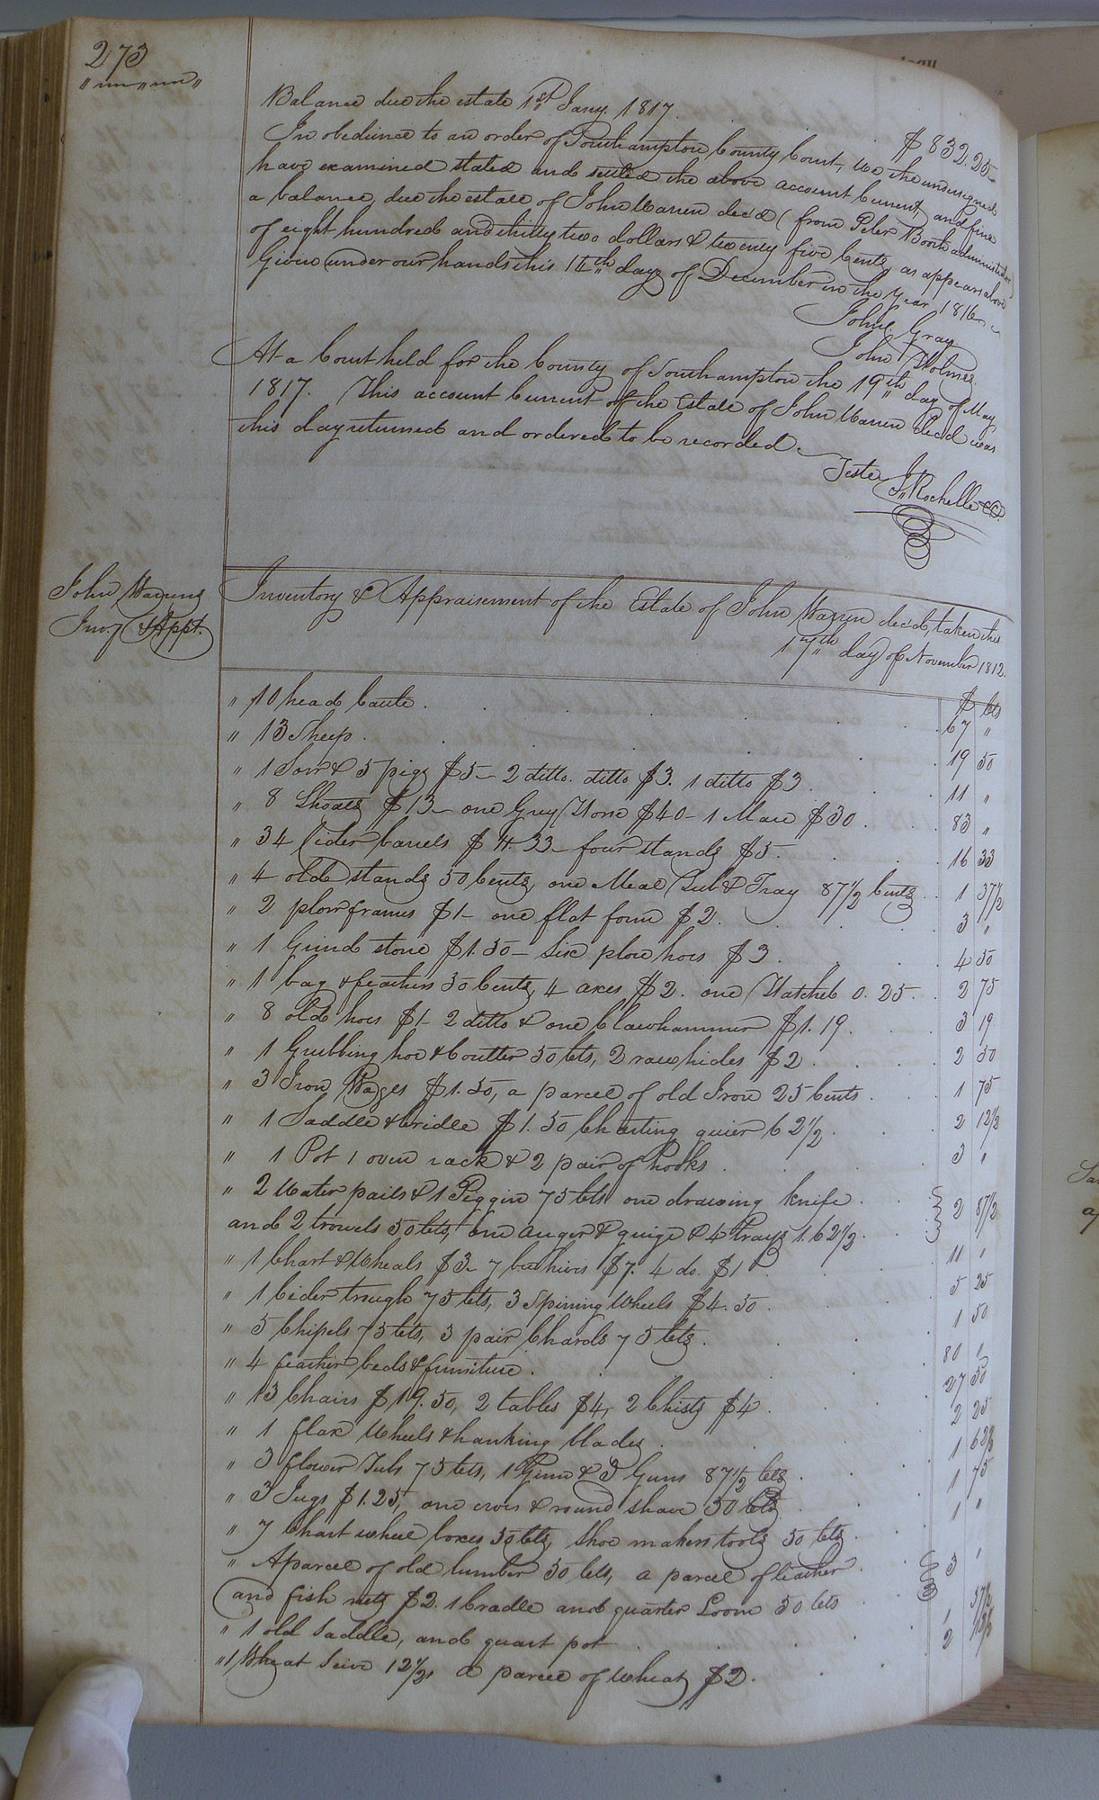 273
Balance due the estate 1st Jany. 1817. $832.25
In obedience to an order of Southampton County Court, we the undersigned
have examined stated and settled the above account Current, and find
a balance due the estate of John Warren decd (from Peter Booth administrator)
of eight hundred and thirty two dollars & twenty five Cents, as appears above
Given under our hands this 14th day of December in the year 1816.
John Gray
John Holmes
At a Court held for the County of Southampton the 19th day of May
1817. This account Current of the Estate of John Warren decd was
this day returned and ordered to be recorded.
Teste J. Rochelle CC.
John Warrens
Invy & Appt.
Inventory & Appraisement of the Estate of John Warren decd, taken this
17th day of November 1812.
$ cts
" 10 head Cattle . 67 "
" 13 Sheep . 19 50
" 1 Sow & 5 pigs $5 – 2 ditto. ditto $3. 1 ditto $3 . 11 "
" 8 Shoats $13 – one Grey Horse $40 – 1 Mare $30 . 83 "
" 34 Cider barrels $11.33 – four stands $5. 16 33
" 4 old stands 50 Cents, one Meal Tub & Tray 87 1/2 Cents . 1 37 1/2
" 2 plow frames $1 – one flat form $2 . 3 "
" 1 Grind stone $1.50 – Six plow hoes $3 . 4 50
" 1 bag & feathers 50 Cents, 4 axes $2. one Hatchet 0.25 . 2 75
" 8 old hoes $1 – 2 ditto & one Clawhammer $1.19 . 3 19
" 1 Grubbing hoe & Coutter 50 cts, 2 raw hides $2 . 2 50
" 3 Iron Wages $1.50, a parcel of old Iron 25 Cents . 1 75
" 1 Saddle & bridle $1.50 Charting quier 62 1/2 . 2 12 1/2
" 1 Pot 1 oven rack & 2 pair of hooks . 3 "
" 2 Water pails & 1 Piggin 75 cts one drawing knife
and 2 trowels 50 cts, one auger & guige & 4 trays 1.62 1/2 . 2 87 1/2
" 1 Chart & Wheals $3 – 7 bee hives $7. 4 do. $1 . 11 "
" 1 Cider trough 75 cts, 3 Spining Wheels $4.50 . 5 25
" 5 Chipels 75 cts, 3 pair Chards 75 cts . 1 50
" 4 feather beds & furniture . 80 "
" 13 Chairs $19.50, 2 tables $4, 2 Chists $4 . 27 50
" 1 flax Wheels & hanking blades . 2 25
" 3 flower Tubs 75 cts, 87 1/2 cts . 1 62 1/2
" 3 Jugs $1.25, one & round shave 50 cts . 1 75
" 7 Chart wheel boxes 50 cts, Shoe makers tools 50 cts . 1 "
" A parcel of old lumber 50 cts, a parcel of leather
and fish nets $2. 1 Cradle and quarter Loom 50 cts 3 "
" 1 old Saddle, and quart pot . " 37 1/2
" 1 Wheat Seive 12 1/2, a parcel of wheat $2 . 2 12 1/2